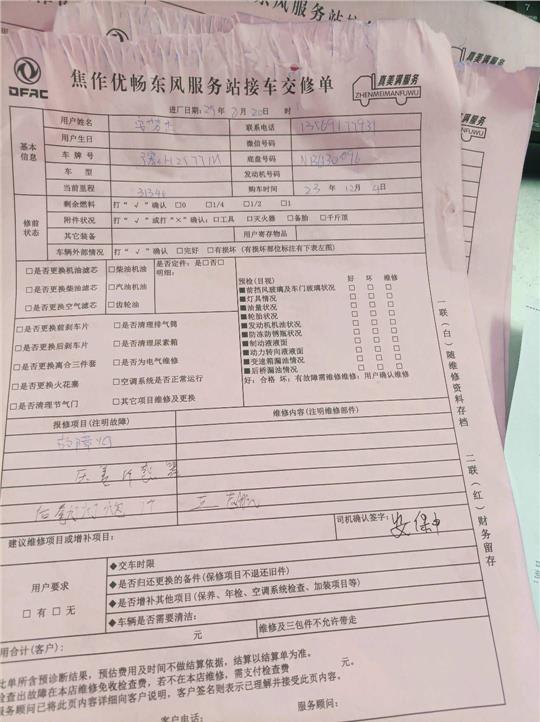 DFAC
焦作优畅东风服务站接车交修单
真美满服务
ZHENMEIMANFUWU
进厂日期: 25 年 月 20 日 时
基本信息
用户姓名
联系电话
用户生日
微信号码
车牌号
底盘号码
车型
发动机号码
当前里程 31346
购车时间 23 年 12 月 日
修前状态
剩余燃料 打“√”确认 □0 □1/4 □1/2 □1
附件状况 打“√”或打“×”确认: □工具 □灭火器 □备胎 □千斤顶
其它装备
用户寄存物品
车辆外部情况 打“√”确认 □完好 □有损坏 (有损坏部位标注有下表左图)
□是否更换机油滤芯 □柴油机油
是否定件: 是□否□
明细:
□是否更换柴油滤芯 □汽油机油
□是否更换空气滤芯 □齿轮油
□是否更换前刹车片 □是否清理排气筒
□是否更换后刹车片 □是否清理尿素箱
□是否更换离合三件套 □是否为电气维修
□是否更换火花塞 □空调系统是否正常运行
□是否清理节气门 □其它项目维修及更换
预检(目视) 好 坏 维修
■前挡风玻璃及车门玻璃状况 □ □ □
■灯具情况 □ □ □
■油量状况 □ □ □
■轮胎状况 □ □ □
■发动机机油状况 □ □ □
■防冻防锈瓶状况 □ □ □
■制动液液面 □ □ □
■动力转向液液面 □ □ □
■变速箱漏油情况 □ □ □
■后桥漏油情况 □ □ □
好: 合格 坏: 有故障需维修维修: 用户确认维修
报修项目(注明故障)
维修内容(注明维修部件)
故障灯
压差传感器
司机确认签字:
建议维修项目或增补项目:
用户要求
□有 □无
◆交车时限
◆是否归还更换的备件(保修项目不退还旧件)
◆是否增补其他项目(保养、年检、空调系统检查、加装项目等)
◆车辆是否需要清洁:
用合计(客户): 元
维修及三包件不允许带走
此单所含预诊断结果,预估费用及时间不做结算依据,结算以结算单为准。
检查出故障在本店维修免收检查费,若不在本店维修,需支付检查费 元。
服务顾问已将此页内容详细向客户说明,客户签名则表示已理解并接受此页内容。
客户电话:
服务顾问:
一联(白)随维修资料存档
二联(红)财务留存